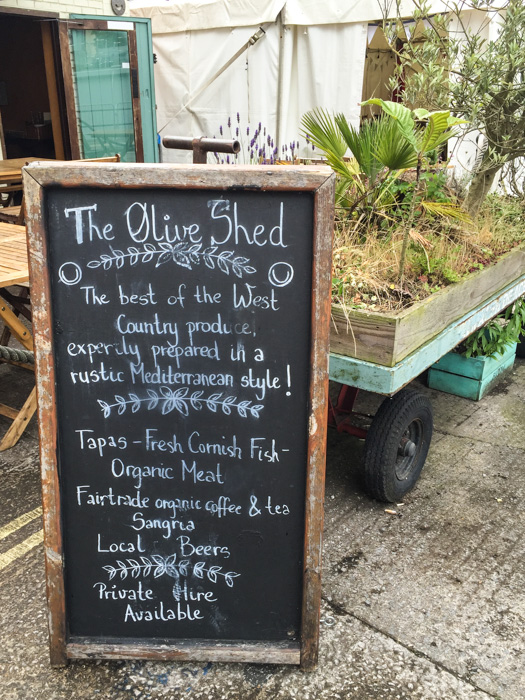 The Olive Shed
The best of the West
Country produce,
expertly prepared in a
rustic Mediterranean style!
Tapas - Fresh Cornish Fish -
Organic Meat
Fairtrade organic coffee & tea
Sangria
Local Beers
Private Hire
Available